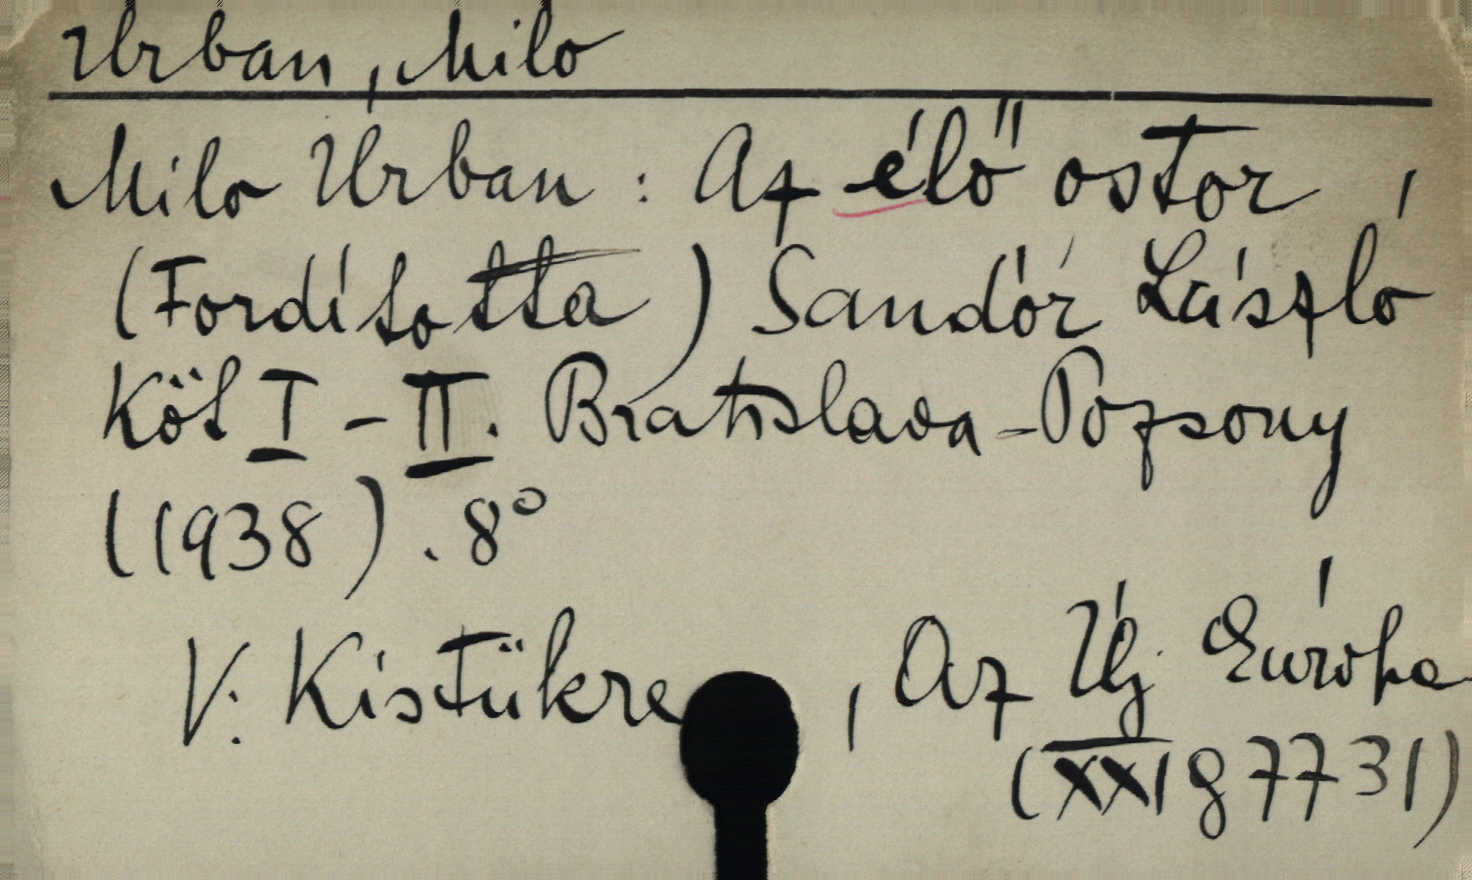 Urban, Milo
Milo Urban: Az élő ostor,
(Fordította) Sándor László
Köt I-II. Bratislava-Pozsony
(1938). 8°
V. Kistükre, Az Új Európa
(XXI g 7731)